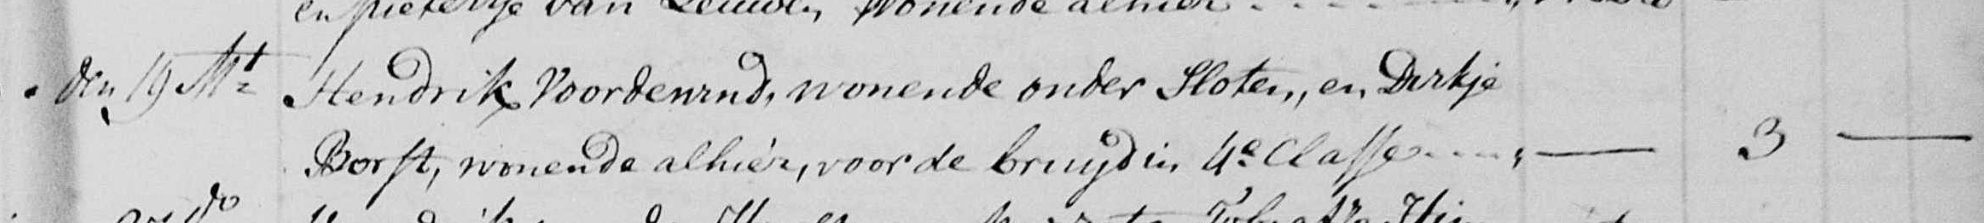 en Pietertje van Leuwen, wonende alhier
den 19 Mt. Hendrik Voordewind, wonende onder Sloten, en Dirkje
Borst, wonende alhier, voor de bruijd in 4e Classe — 3 —